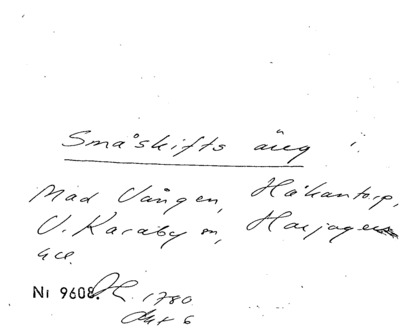 Småskifts äng i.
Mad Vången, Håkantorp,
V. Karaby sn, Harjagers
hd.
Nr 9608. 1780
akt 6